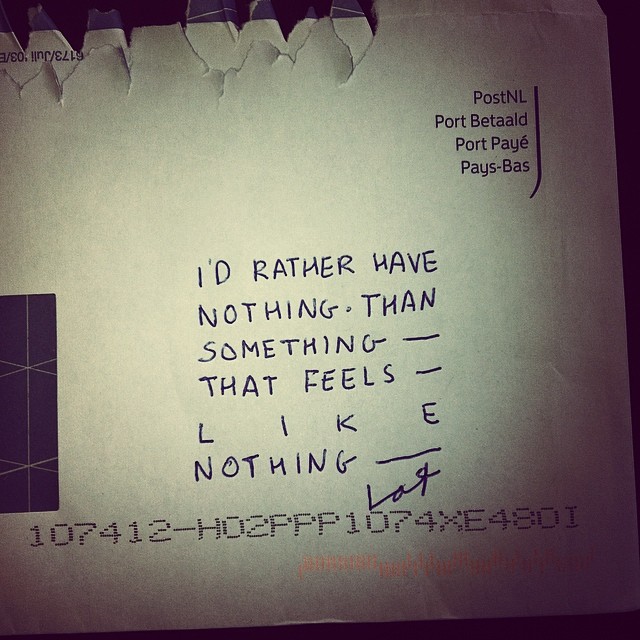 6173/Juli '03/E
PostNL
Port Betaald
Port Payé
Pays-Bas
I'D RATHER HAVE
NOTHING. THAN
SOMETHING —
THAT FEELS —
L I K E
NOTHING —
107412-HD2PPP1074XE48DI